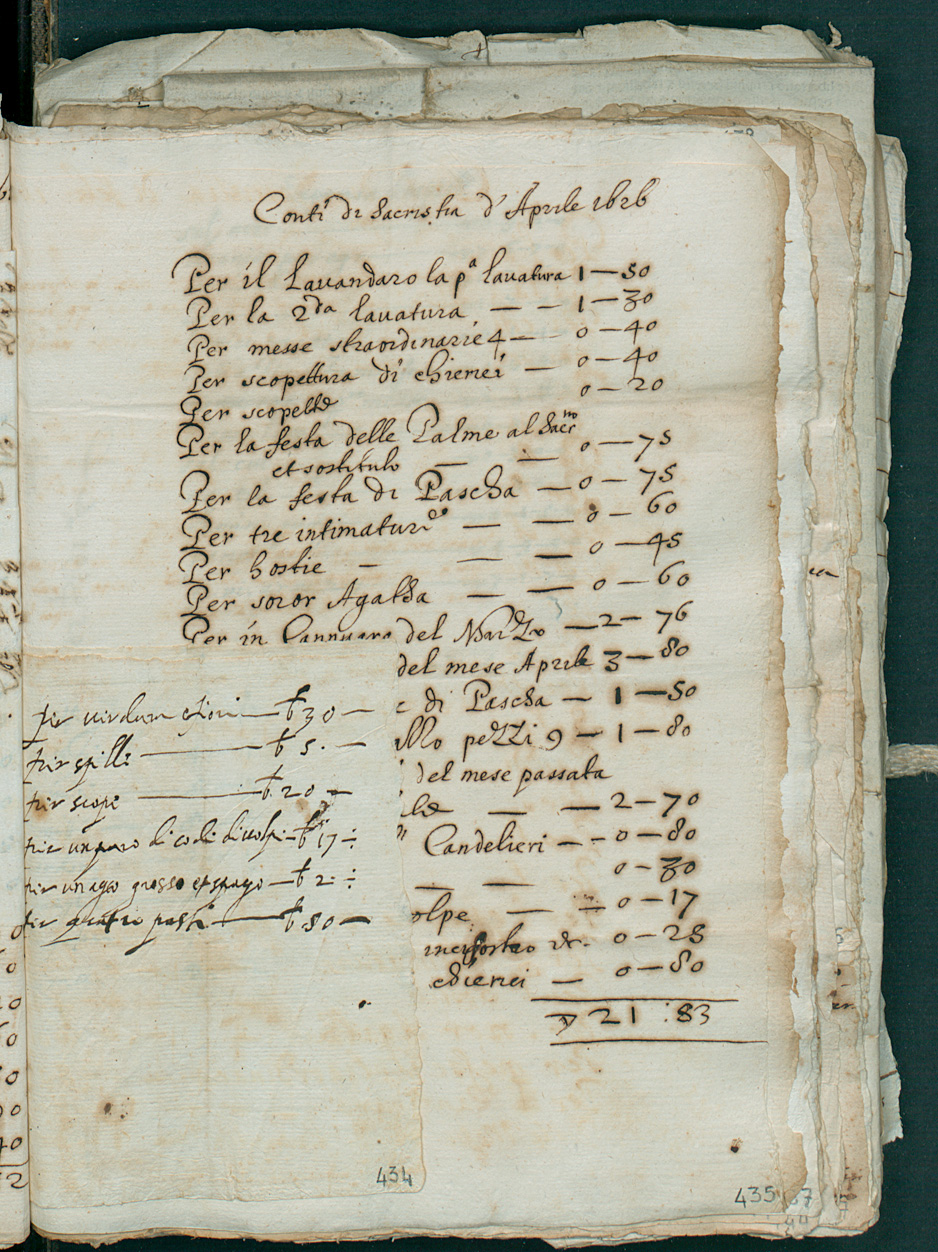 Conti di Sacristia d'Aprile 1626
Per il Lavandaro la pª lauatura 1 — 50
Per la 2da lauatura — — 1 — 30
Per messe straordinarie 4 — 0 — 40
Per scopettura di chierici — 0 — 40
Per scopette 0 — 20
Per la festa delle Palme al Sacrno
et sostituto — — 0 — 75
Per la festa di Pascha — 0 — 75
Per tre intimature — — 0 — 60
Per hostie — — — 0 — 45
Per soror Agatha — — 0 — 60
Per in del Marzo — 2 — 76
del mese Aprile 3 — 80
e di Pascha — 1 — 50
pezzi 9 — 1 — 80
del mese passata
— — 2 — 70
Candelieri — — 0 — 80
— — 0 — 30
olpe — — 0 — 17
&c. 0 — 25
chierici — 0 — 80
21 : 83
per — 30 —
per spilli — 5 —
per scope — 20 —
per un paro di code di volpe — 17 :
per un ago grosso et spago — 2 :
per quattro — 80 —
434
435